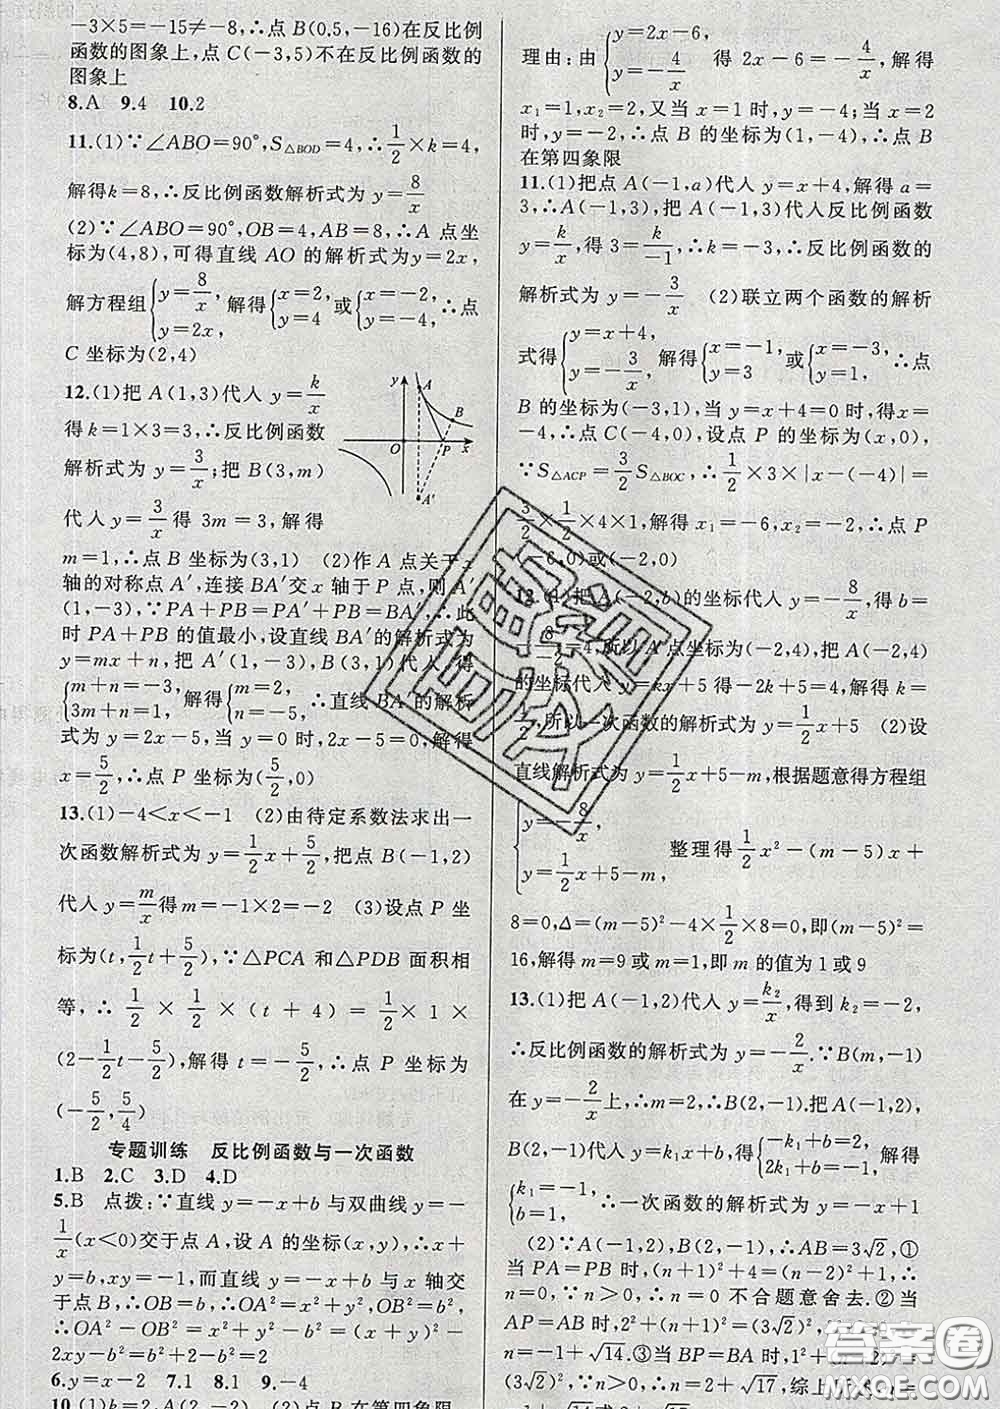 -3×5=-15≠-8,∴点B(0.5,-16)在反比例
函数的图象上,点C(-3,5)不在反比例函数的
图象上
8.A 9.4 10.2
11.(1)∵∠ABO=90°,S△BOD=4,∴1/2×k=4,
解得k=8,∴反比例函数解析式为y=8/x
(2)∵∠ABO=90°,OB=4,AB=8,∴A点坐
标为(4,8),可得直线AO的解析式为y=2x,
解方程组{y=8/x, y=2x, 解得{x=2, y=4 或{x=-2, y=-4, ∴点
C坐标为(2,4)
12.(1)把A(1,3)代入y=k/x
得k=1×3=3,∴反比例函数
解析式为y=3/x;把B(3,m)
代入y=3/x得3m=3,解得
y A B O P x A′
m=1,∴点B坐标为(3,1) (2)作A点关于x
轴的对称点A′,连接BA′交x轴于P点,则A′
(1,-3),∵PA+PB=PA′+PB=BA′,∴此
时PA+PB的值最小,设直线BA′的解析式为
y=mx+n,把A′(1,-3),B(3,1)代入,得
{m+n=-3, 3m+n=1, 解得{m=2, n=-5, ∴直线BA′的解析
式为y=2x-5,当y=0时,2x-5=0,解得
x=5/2,∴点P坐标为(5/2,0)
13.(1)-4<x<-1 (2)由待定系数法求出一
次函数解析式为y=1/2x+5/2,把点B(-1,2)
代入y=m/x得m=-1×2=-2 (3)设点P坐
标为(t,1/2t+5/2),∵△PCA和△PDB面积相
等,∴1/2×1/2×(t+4)=1/2×1×
(2-1/2t-5/2),解得t=-5/2,∴点P坐标为
(-5/2,5/4)
专题训练 反比例函数与一次函数
1.B 2.C 3.D 4.D
5.B 点拨:∵直线y=-x+b与双曲线y=-
1/x(x<0)交于点A,设A的坐标(x,y),∴x+
y=b,xy=-1,而直线y=-x+b与x轴交
于点B,∴OB=b,∴OA²=x²+y²,OB²=b²,
∴OA²-OB²=x²+y²-b²=(x+y)²-
2xy-b²=b²+2-b²=2
6.y=x-2 7.1 8.1 9.-4
10.(1)k=2,A(2,-2) (2)点B在第四象限
理由:由{y=2x-6, y=-4/x 得2x-6=-4/x,解得
x₁=1,x₂=2,又当x=1时,y=-4;当x=2
时,y=-2,∴点B的坐标为(1,-4),∴点B
在第四象限
11.(1)把点A(-1,a)代入y=x+4,解得a=
3,∴A(-1,3),把A(-1,3)代入反比例函数
y=k/x,得3=k/-1,∴k=-3,∴反比例函数的
解析式为y=-3/x (2)联立两个函数的解析
式得{y=x+4, y=-3/x, 解得{x=-1, y=3 或{x=-3, y=1, ∴点
B的坐标为(-3,1),当y=x+4=0时,得x=
-4,∴点C(-4,0),设点P的坐标为(x,0),
∵S△ACP=3/2S△BOC,∴1/2×3×|x-(-4)|=
3/2×1/2×4×1,解得x₁=-6,x₂=-2,∴点P
(-6,0)或(-2,0)
12.(1)把A(-2,b)的坐标代入y=-8/x,得b=
-8/-2=4,所以A点坐标为(-2,4),把A(-2,4)
的坐标代入y=kx+5得-2k+5=4,解得k=
1/2,所以一次函数的解析式为y=1/2x+5 (2)设
直线解析式为y=1/2x+5-m,根据题意得方程组
{y=-8/x, y=1/2x+5-m, 整理得1/2x²-(m-5)x+
8=0,Δ=(m-5)²-4×1/2×8=0,即(m-5)²=
16,解得m=9或m=1,即m的值为1或9
13.(1)把A(-1,2)代入y=k₂/x,得到k₂=-2,
∴反比例函数的解析式为y=-2/x.∵B(m,-1)
在y=-2/x上,∴m=2,∴B(2,-1).把A(-1,2),
B(2,-1)代入y=k₁x+b,得{-k₁+b=2, 2k₁+b=-1,解得
{k₁=-1, b=1, ∴一次函数的解析式为y=-x+1
(2)∵A(-1,2),B(2,-1),∴AB=3√2,①
当PA=PB时,(n+1)²+4=(n-2)²+1,∴
n=0,∵n>0,∴n=0不合题意舍去.②当
AP=AB时,2²+(n+1)²=(3√2)²,∵n>0,∴
n=-1+√14.③当BP=BA时,1²+(n-2)²=
(3√2)²,∵n>0,∴n=2+√17,综上所述,n=
答案圈
MXQE.COM